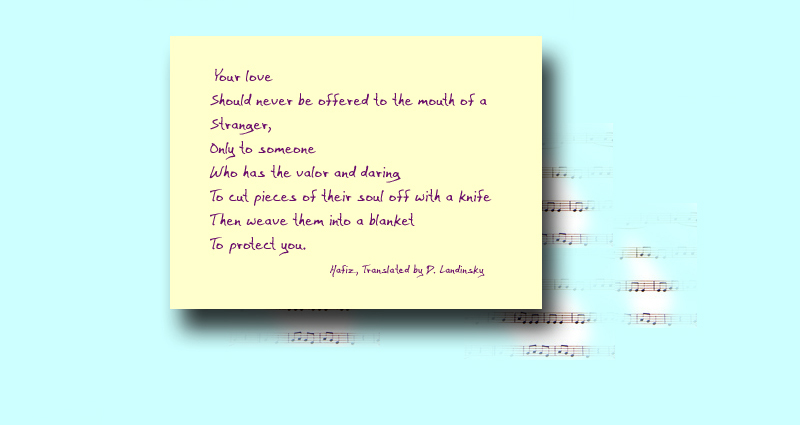 Your love
Should never be offered to the mouth of a
Stranger,
Only to someone
Who has the valor and daring
To cut pieces of their soul off with a knife
Then weave them into a blanket
To protect you.
Hafiz, Translated by D. Landinsky